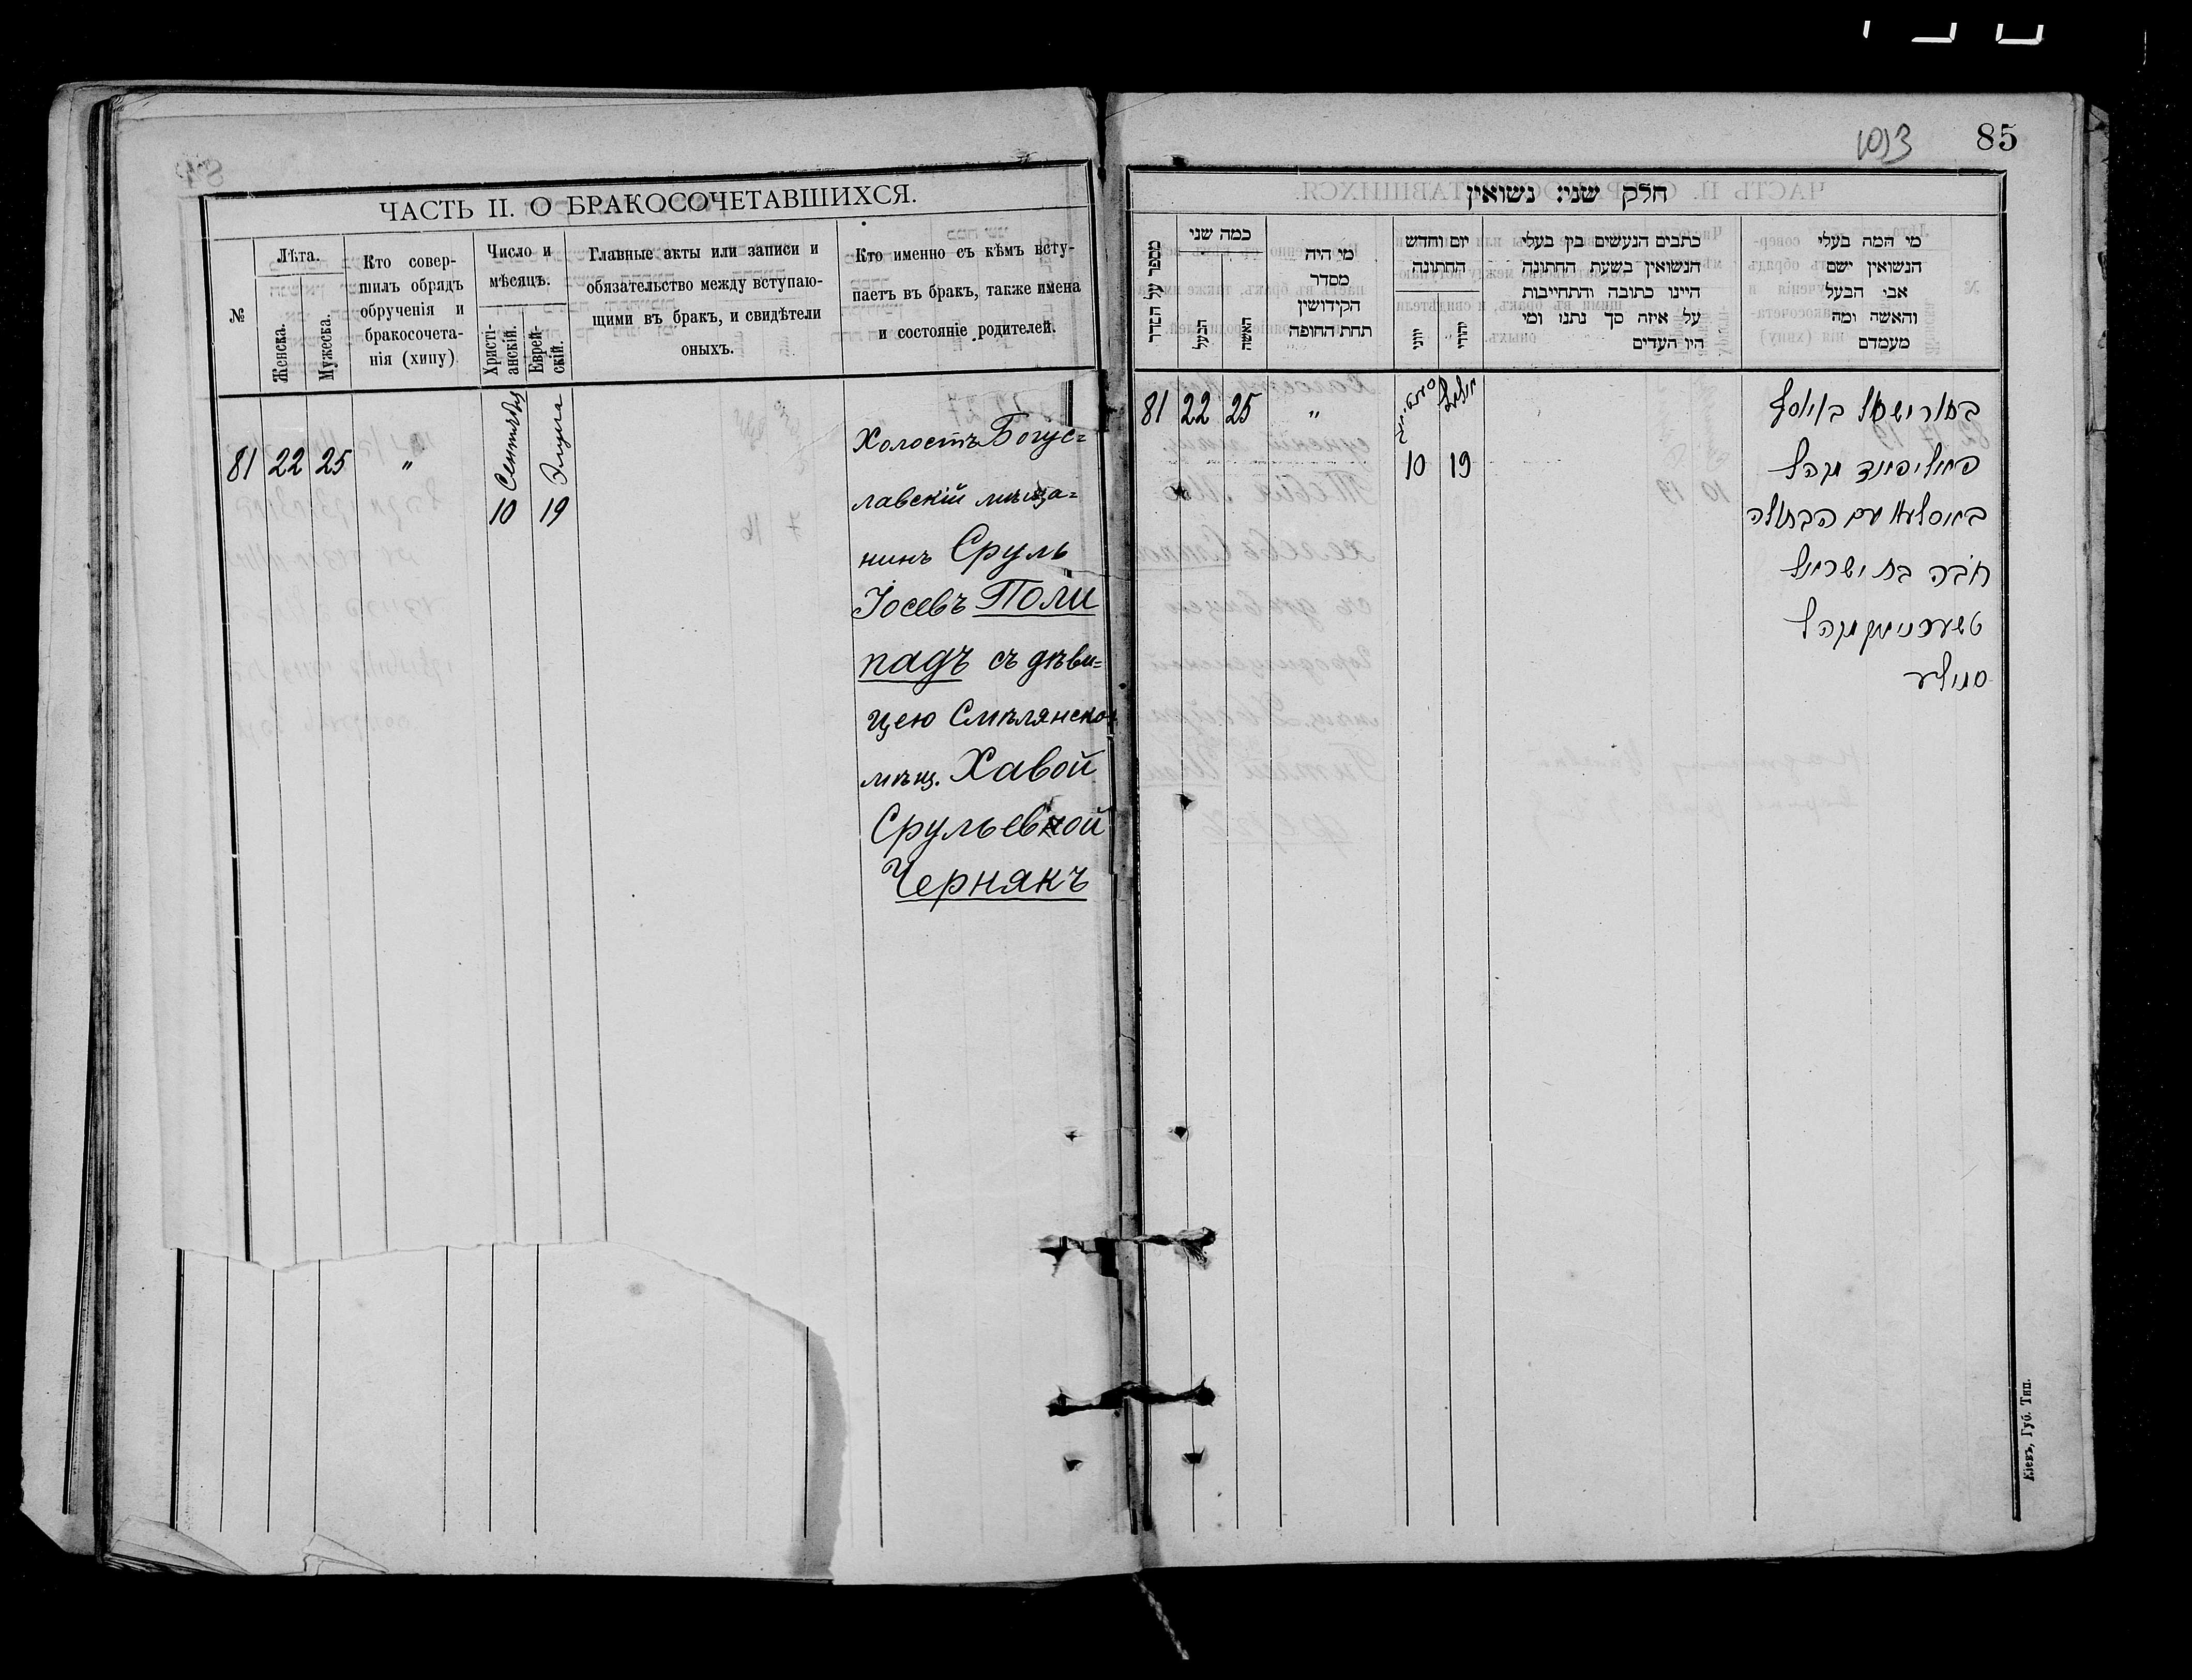 ЧАСТЬ II. О БРАКОСОЧЕТАВШИХСЯ.
№
Лѣта.
Женска.
Мужеска.
Кто совер-
шилъ обрядъ
обрученія и
бракосочета-
нія (хипу)
Число и
мѣсяцъ.
Христі-
анскій.
Еврей-
скій.
Главные акты или записи и
обязательство между вступаю-
щими въ бракъ, и свидѣтели
оныхъ.
Кто именно съ кѣмъ всту-
паетъ въ бракъ, также имена
и состояніе родителей.
81 22 25 "
Сентября
10
Элула
19
Холостъ Богус=
лавскій мѣща=
нинъ Сруль
Іосевъ Поли
падъ съ дѣви=
цею Смѣлянской
мѣщ. Хавой
Срульевной
Чернякъ
1013
85
חלק שני נשואין
מספר על הסדר
כמה שני
הבעל
האשה
מי היה
מסדר
הקידושין
תחת החופה
יום וחדש
החתונה
יוני
יהודי
כתבים הנעשים בין בעלי
הנשואין בשעת החתונה
היינו כתובה והתחייבות
על איזה סך נתנו ומי
היו העדים
מי המה בעלי
הנשואין ושם
אבי הבעל
והאשה ומה
מעמדם
81 22 25 "
10
אלול
19
בחור ישראל בן יוסף
פאליפאד מקהל
באסלאוו עם הבתולה
חוה בת ישראל
טשערניאק מקהל
סמילע
Кіевъ, Губ. Тип.